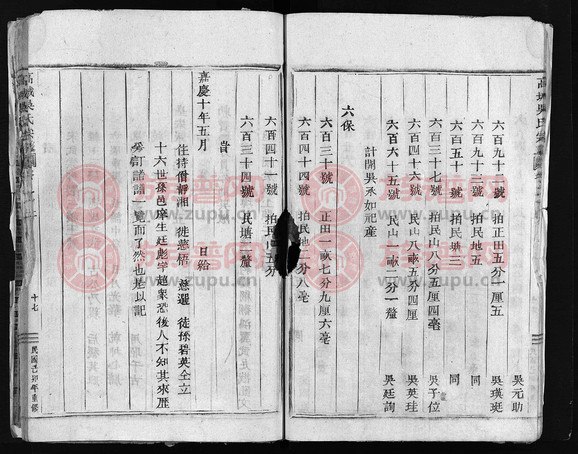 吳元助
六百九十二號 拍正田五分一厘五 吳瑛珽
六百九十三號 拍民地五 同
六百五十一號 拍民地三 同
六百三十七號 拍民山八分五厘四毫 吳于位
六百四十六號 民山八畝五分四厘 吳英珪
六百六十五號 民山一畝二分一釐 吳廷詢
計開吳承如祀產
六保
六百三十號 正田一畝七分九厘六毫
六百四十四號 拍民地二分八毫
六百四十一號 拍民地五分
六百三十四號 民塘二釐
嘉慶十年五月 日給
住持僧靜湘 徒慈悟 慈選 徒孫碧英仝立
十六世孫邑庠生廷彪字超衆恐後人不知其來歷
訂諸譜一覽而了然也是以記
高城吳氏宗譜
十七
民國己卯年重修
www.zupu.cn